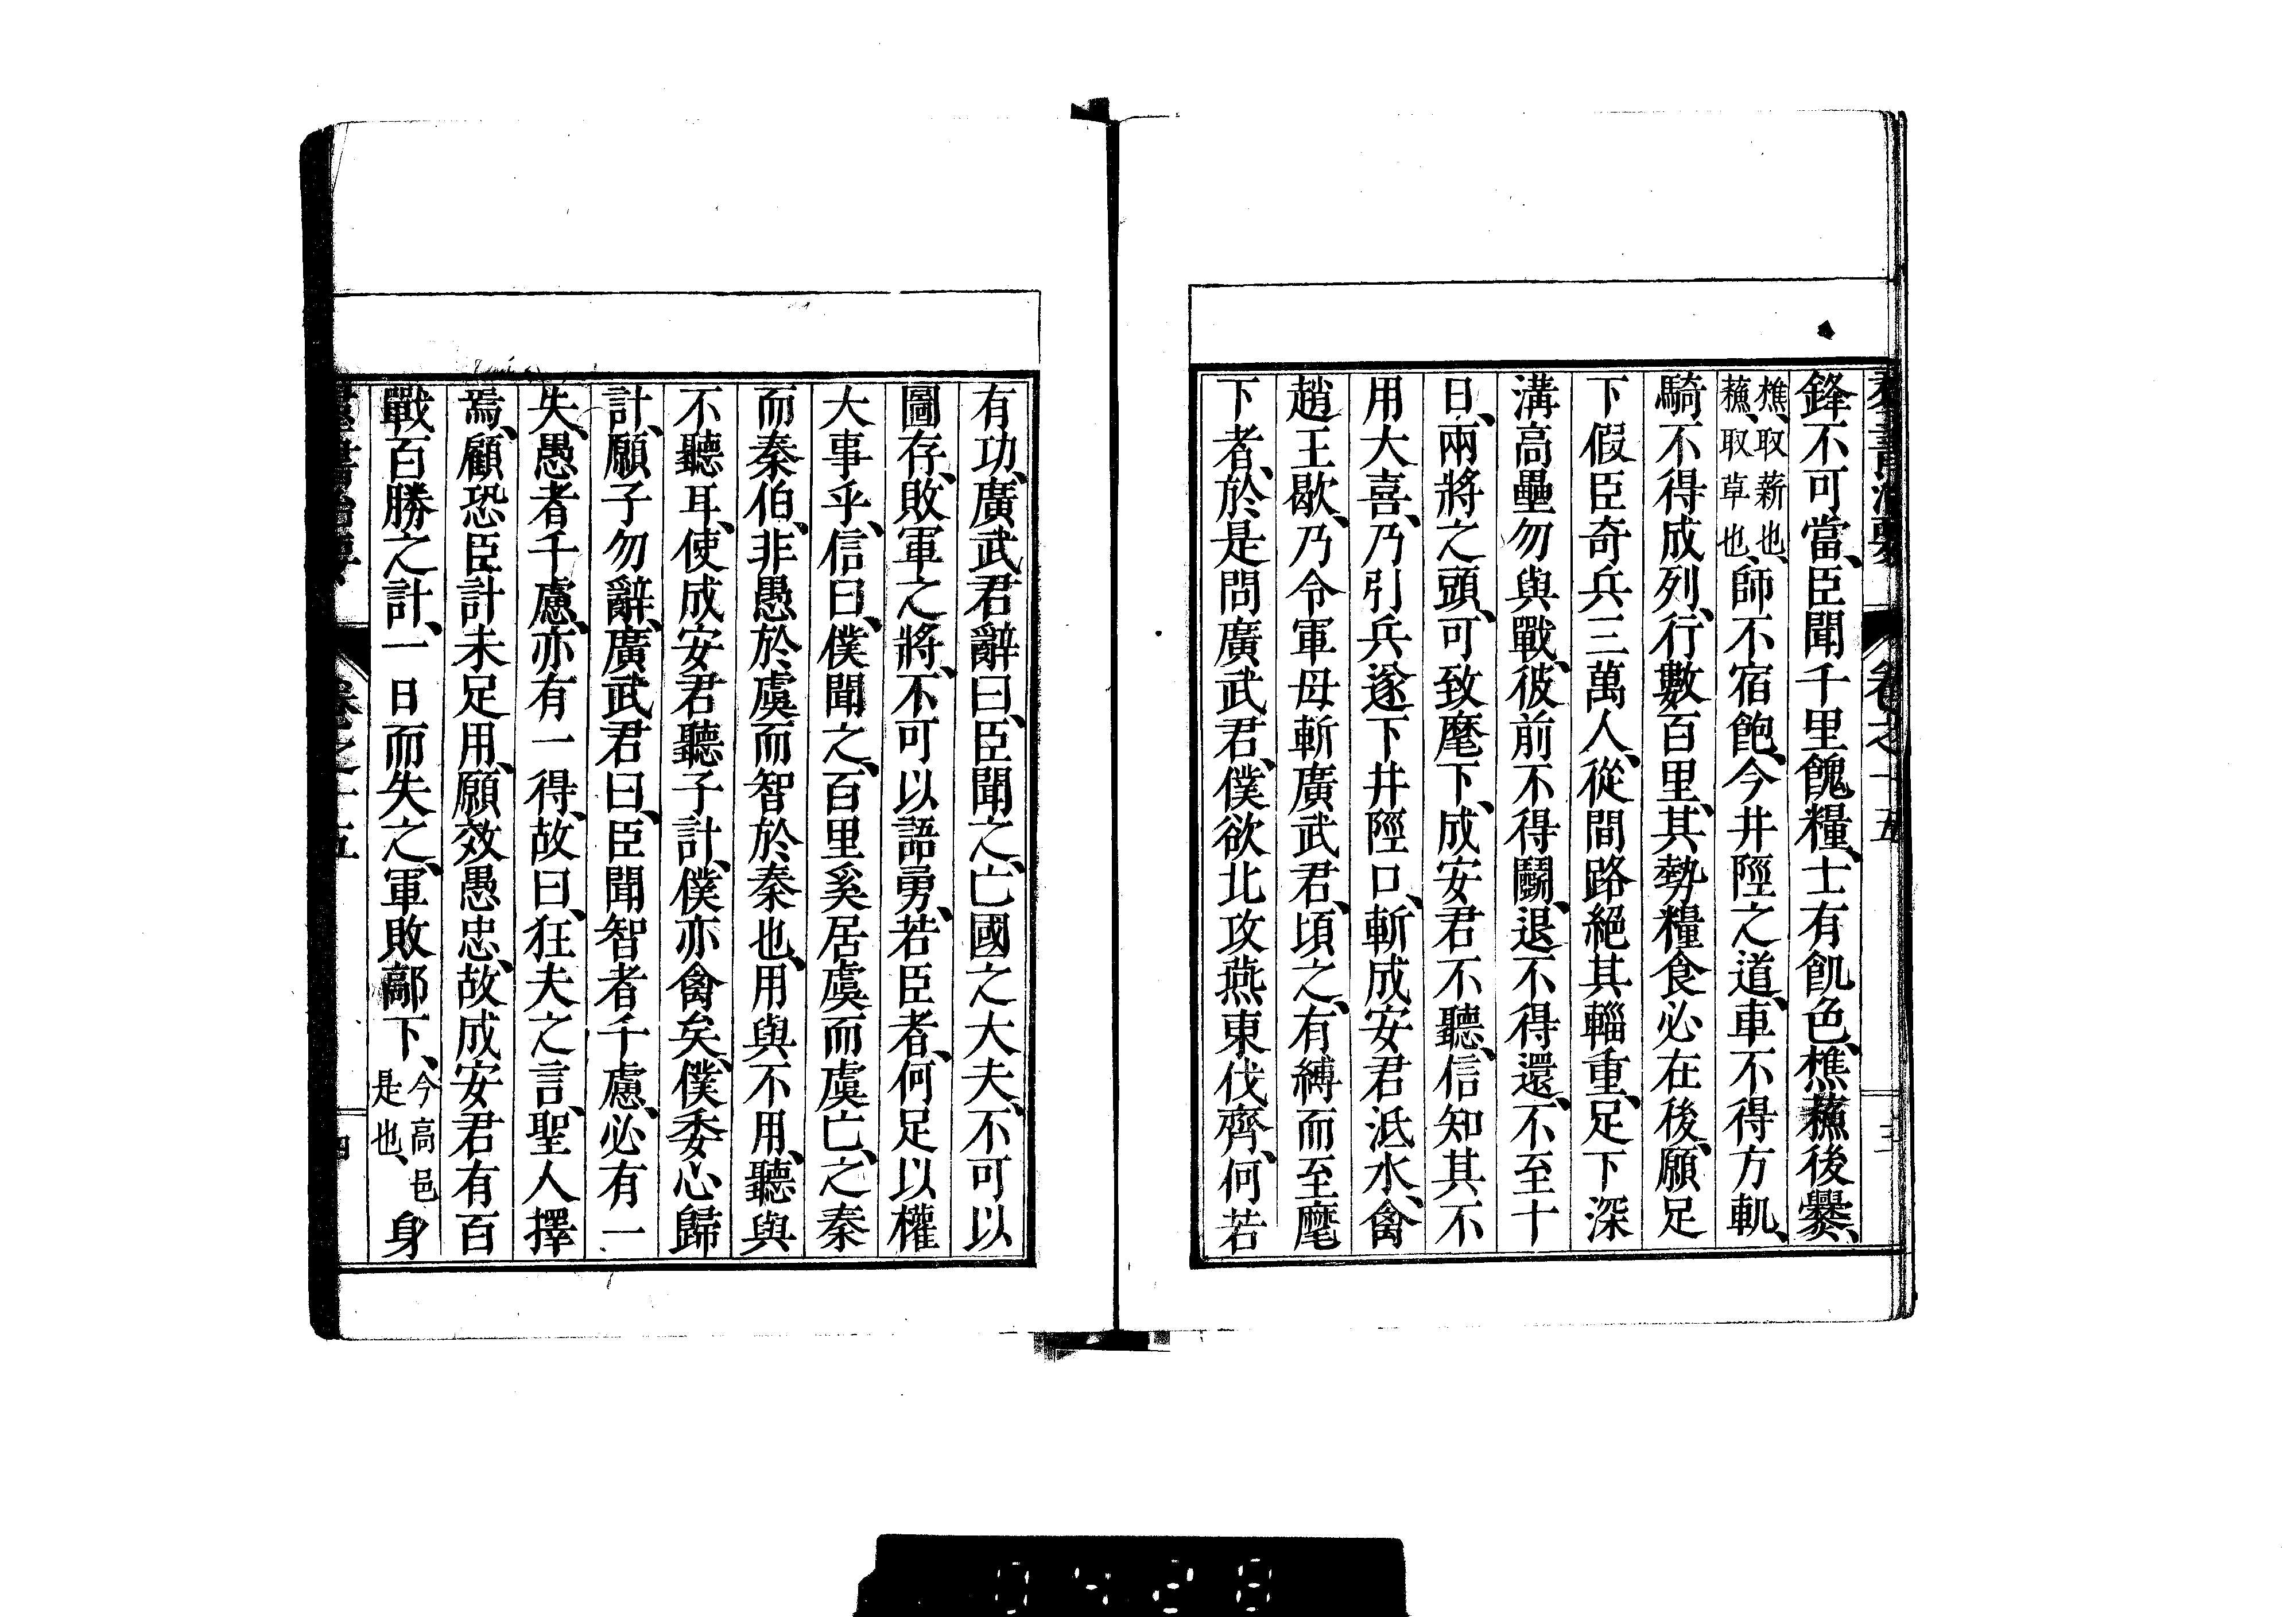 鋒不可當、臣聞千里餽糧、士有飢色、樵蘓後爨、
樵、取薪也、蘓、取草也、師不宿飽、今井陘之道、車不得方軌、
騎不得成列、行數百里、其勢糧食必在後、願足
下假臣奇兵三萬人、從間路絕其輜重、足下深
溝高壘勿與戰、彼前不得鬬、退不得還、不至十
日、兩將之頭、可致麾下、成安君不聽、信知其不
用大喜、乃引兵遂下井陘口、斬成安君泜水、禽
趙王歇、乃令軍毋斬廣武君、頃之、有縛而至麾
下者、於是問廣武君、僕欲北攻燕東伐齊、何若
有功、廣武君辭曰、臣聞之、亡國之大夫、不可以
圖存、敗軍之將、不可以語勇、若臣者、何足以權
大事乎、信曰、僕聞之、百里奚居虞而虞亡、之秦
而秦伯、非愚於虞而智於秦也、用與不用、聽與
不聽耳、使成安君聽子計、僕亦禽矣、僕委心歸
計、願子勿辭、廣武君曰、臣聞智者千慮、必有一
失、愚者千慮、亦有一得、故曰、狂夫之言、聖人擇
焉、顧恐臣計未足用、願效愚忠、故成安君有百
戰百勝之計、一日而失之、軍敗鄗下、今高邑是也、身
卷之十五
0428